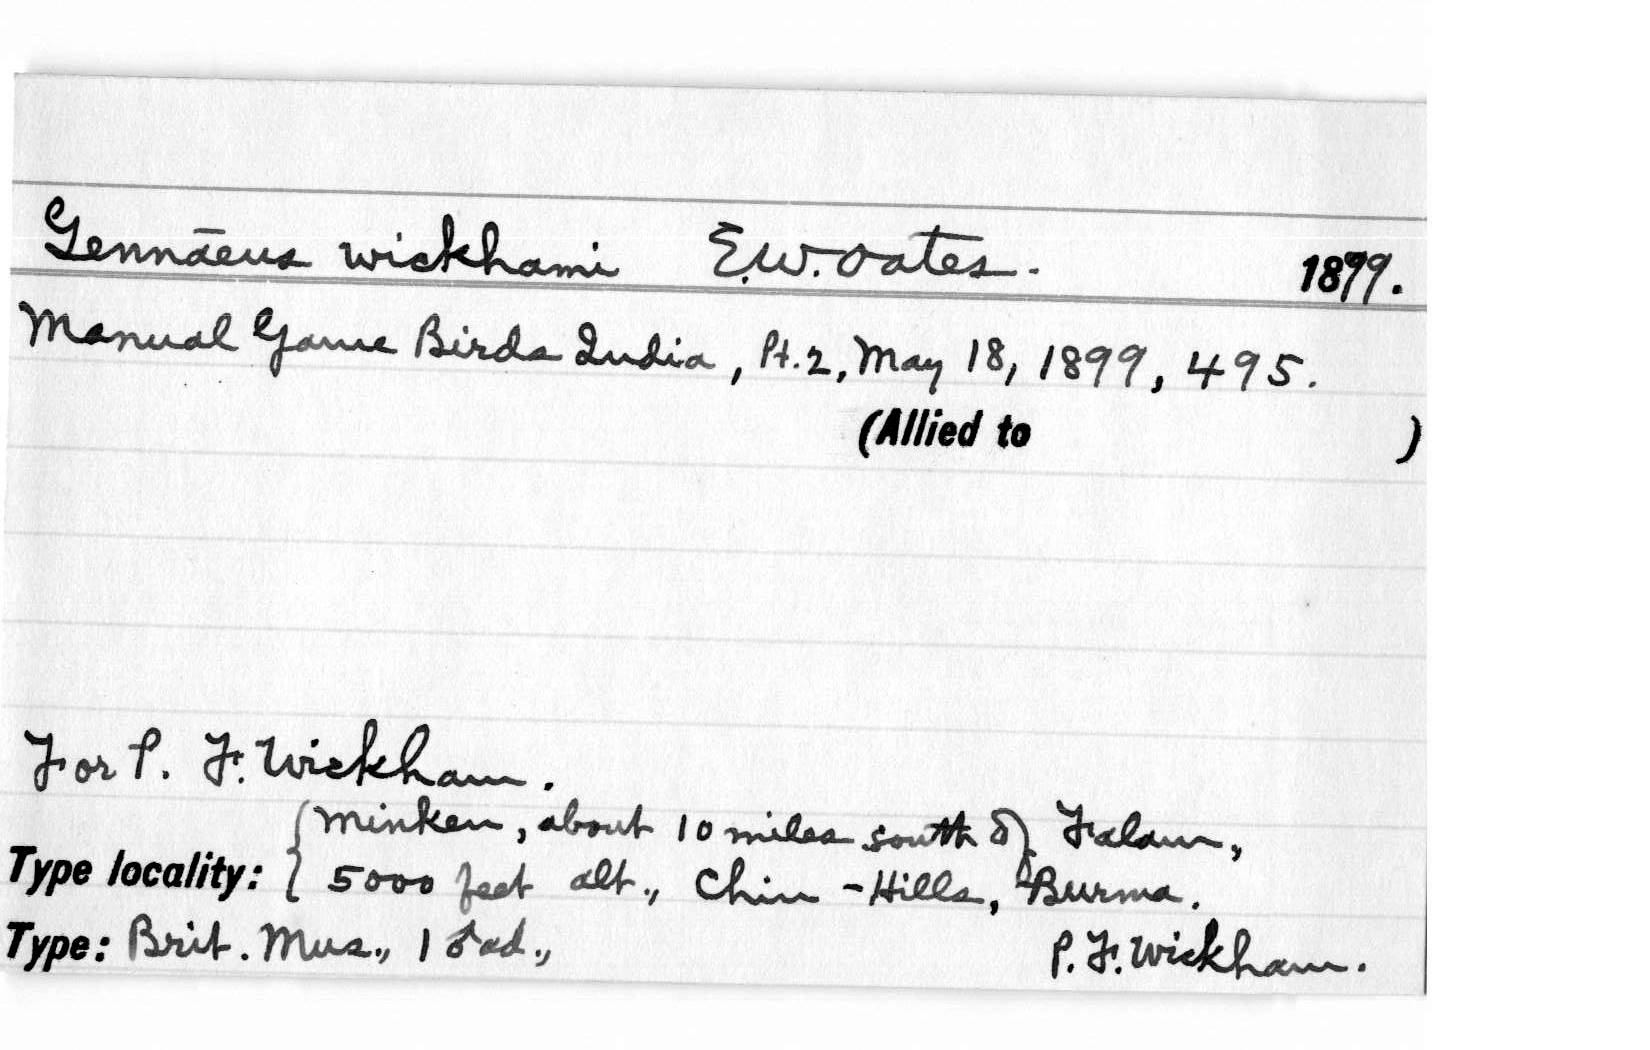 Gennāeus wickhami E.W. Oates. 1899.
Manual Game Birds India, Pt. 2, May 18, 1899, 495.
(Allied to )
For P. F. Wickham.
Minken, about 10 miles south of Falam,
Type locality: { 5000 feet alt., Chin-Hills, Burma.
Type: Brit. Mus., 1 ♂ ad., P. F. Wickham.